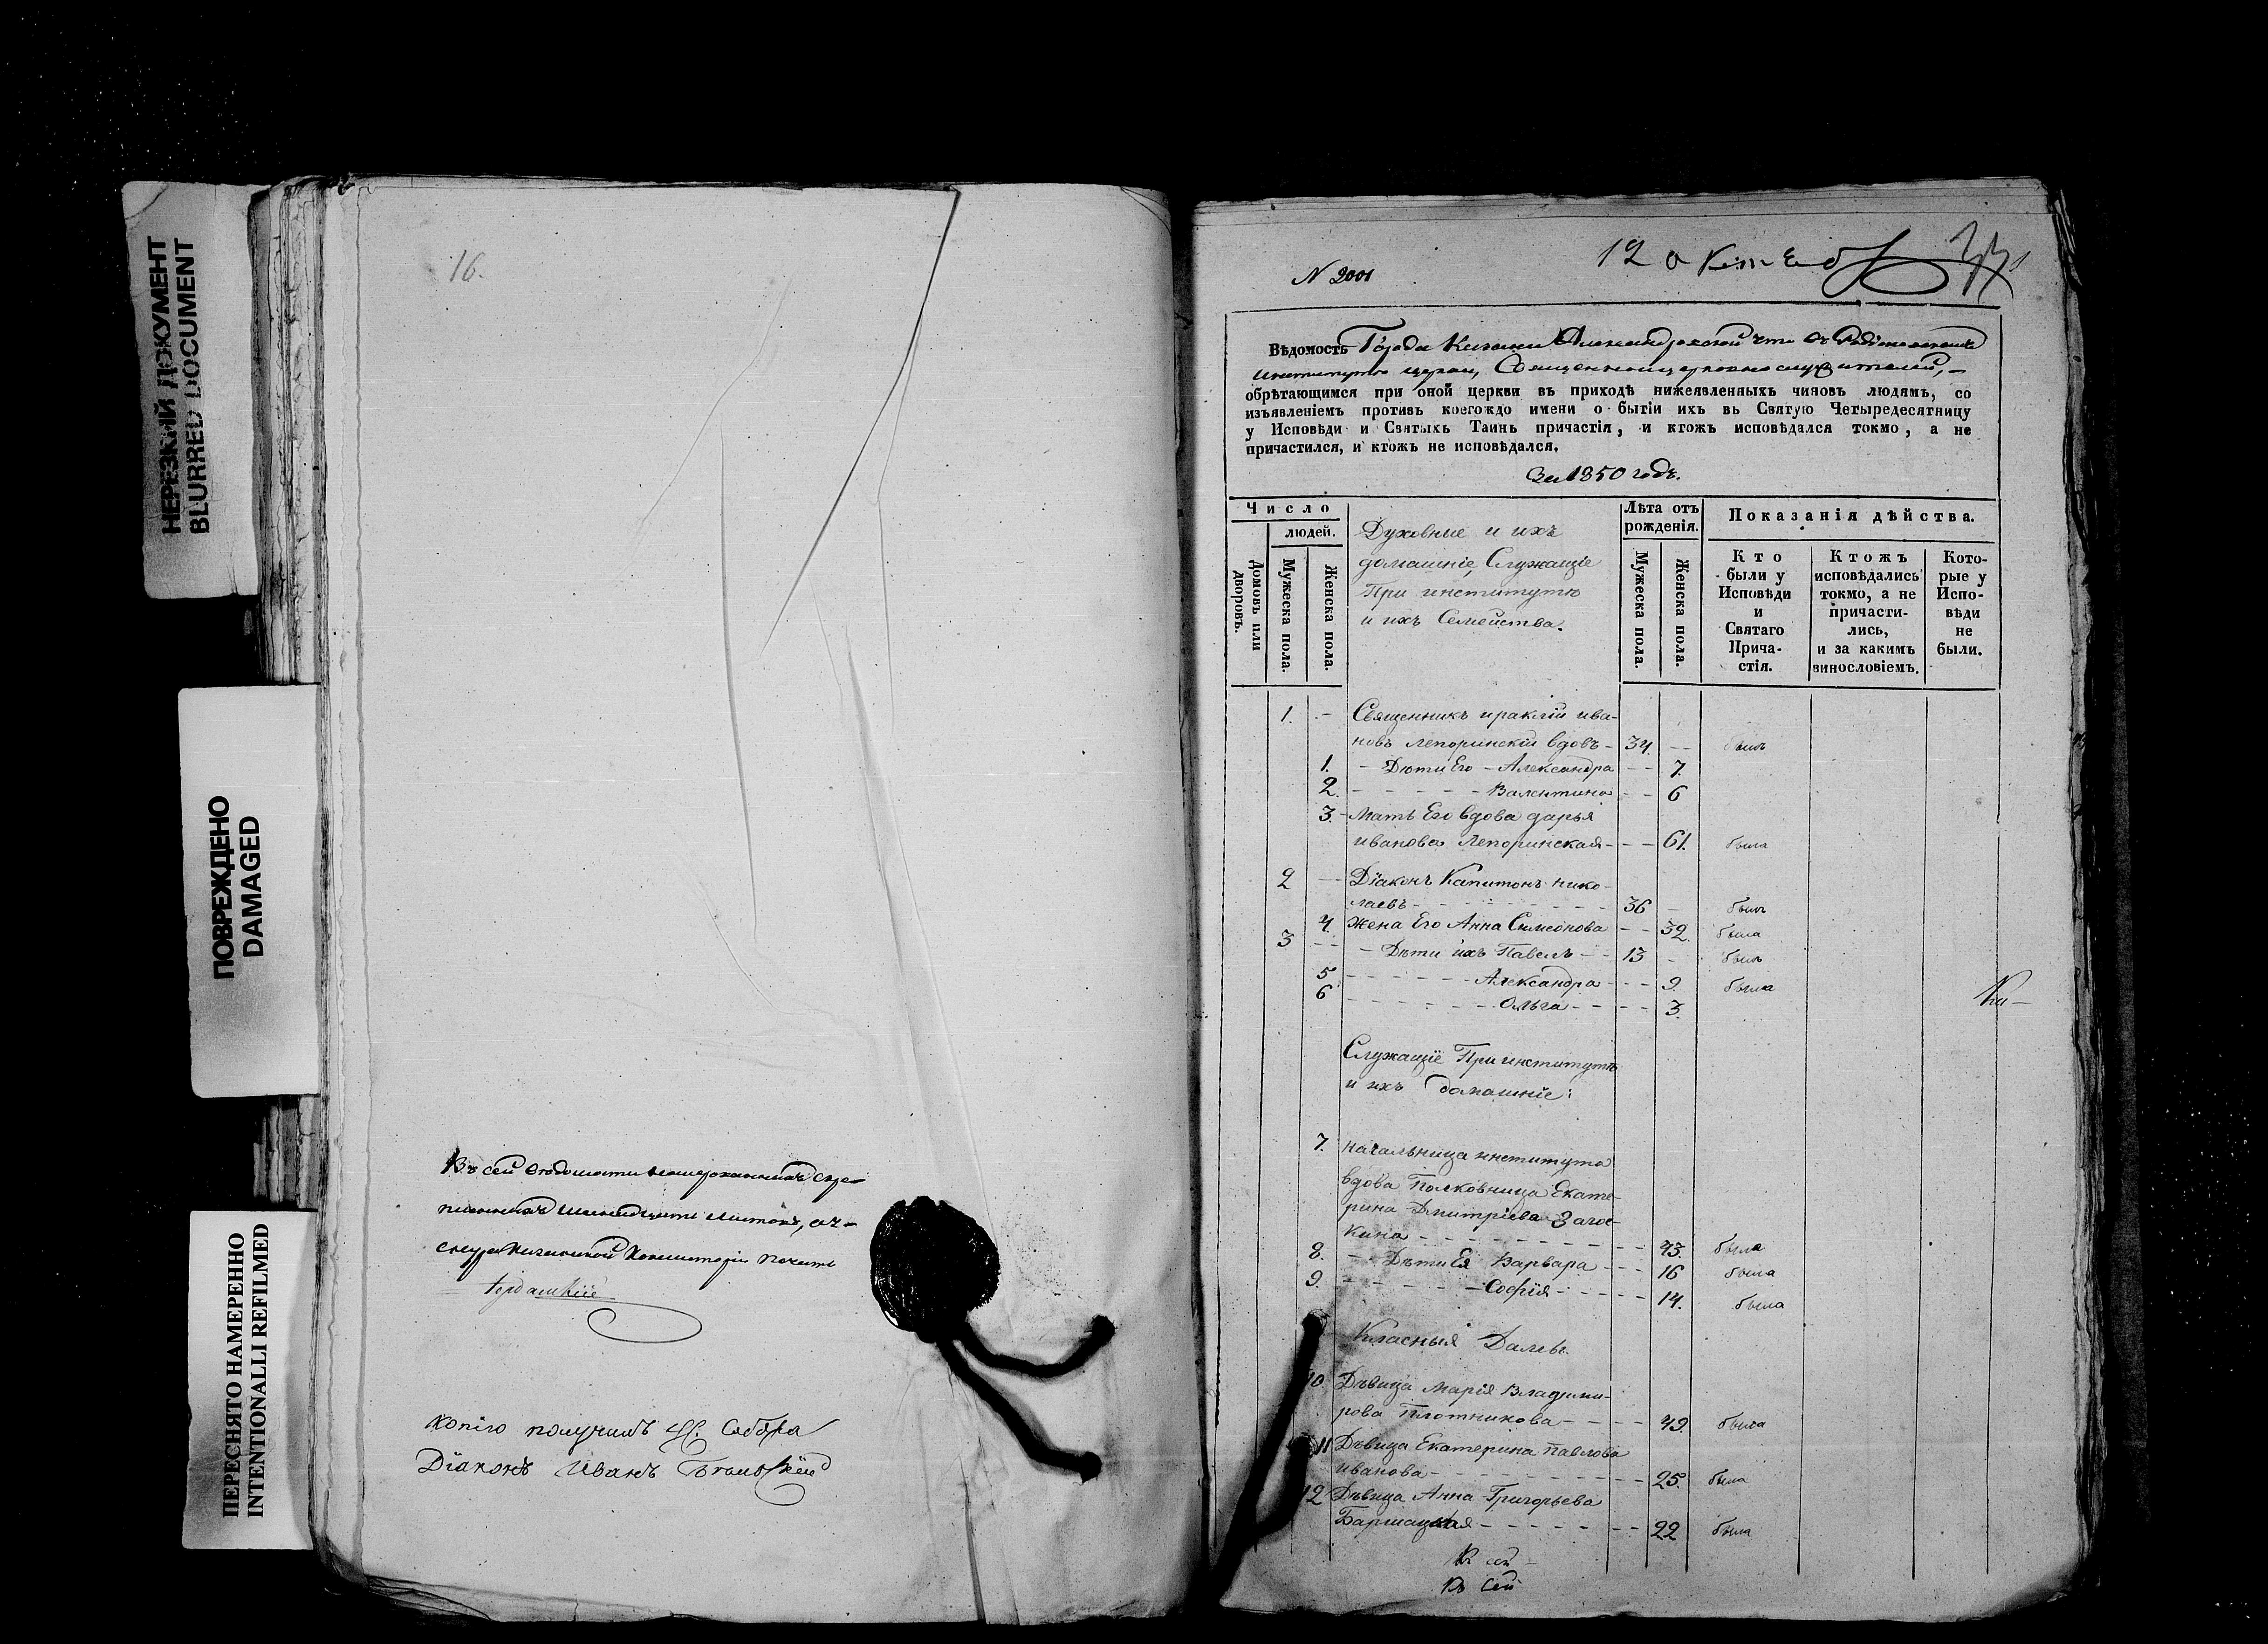 НЕРЕЗКИЙ ДОКУМЕНТ
BLURRED DOCUMENT
ПОВРЕЖДЕНО
DAMAGED
ПЕРЕСНЯТО НАМЕРЕННО
INTENTIONALLI REFILMED
16.
Въ сей
листовъ,
Консисторіи печать
копію получилъ
Діаконъ Иванъ
N 2001
12 октебр
Вѣдомость Города Казани что въ Родіоновскомъ
Институтѣ церкви, Священноцерковнослужителей,
обрѣтающимся при оной церкви въ приходѣ нижеявленныхъ чиновъ людямъ, со
изъявленіемъ противъ коегождо имени о бытіи ихъ въ Святую Четыредесятницу
у Исповѣди и Святыхъ Таинъ причастія, и ктожъ исповѣдался токмо, а не
причастился, и ктожъ не исповѣдался.
За 1850 годъ.
Число
людей.
Домовъ или дворовъ.
Мужеска пола.
Женска пола.
Духовные и ихъ
домашніе, Служащіе
При институтѣ
и ихъ Семейства.
Лѣта отъ рожденія.
Мужеска пола.
Женска пола.
Показанія дѣйства.
Кто
были у
Исповѣди
и
Святаго
Прича-
стія.
Ктожъ
исповѣдались
токмо, а не
причасти-
лись,
и за какимъ
винословіемъ.
Кото-
рые у
Испо-
вѣди
не
были.
1. - Священникъ ираклій ива-
новъ Лепоринскій вдовъ - 34. - былъ
1. - Дѣти Его - Александра - 7.
2. - Валентина - 6
3. - Мать Его вдова дарья
иванова Лепоринская - 61. была
2 - Діаконъ Капитонъ нико-
лаевъ - 36 - былъ
4. Жена Его Анна Симеонова - 32. была
3 - Дѣти ихъ Павелъ - 13 - былъ
5 - Александра - 9. была
6 - Ольга - 3.
Служащіе При институтѣ
и ихъ домашніе:
7. начальница института
вдова Полковница Екате-
рина Дмитріева Загос-
кина - 43. была
8. - Дѣти Ея Варвара - 16 была
9. - Софія - 14. была
Класныя Дамы.
10. Дѣвица Марія Владими-
рова Плотникова - 49. была
11 Дѣвица Екатерина павлова
иванова - 25. была
12 Дѣвица Анна Григорьева
- 22 была
Къ сей
Къ сей